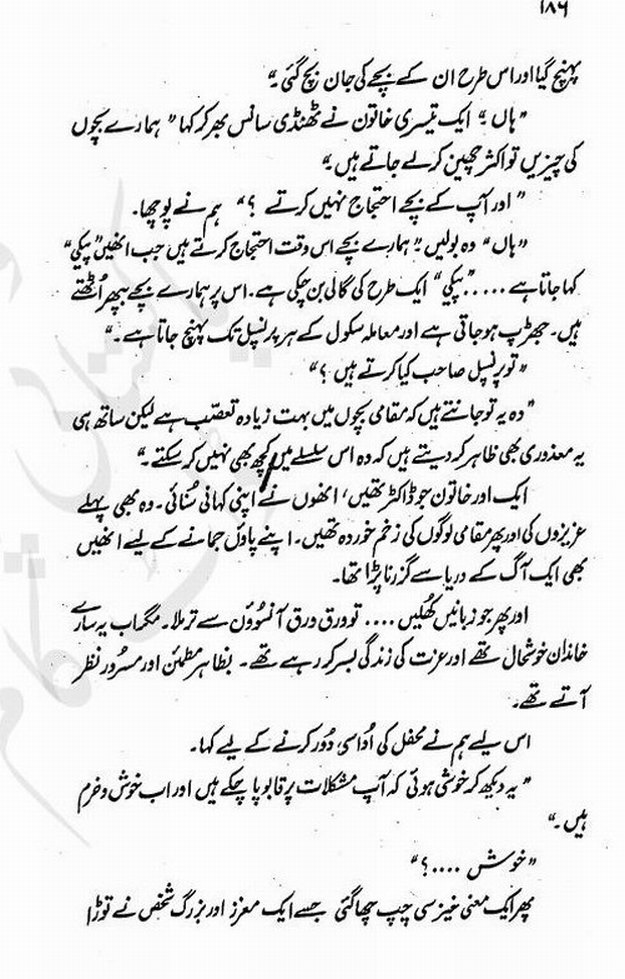 ۱۸۶
پہنچ گیا اور اس طرح ان کے بچے کی جان بچ گئی۔“
”ہاں۔“ ایک تیسری خاتون نے ٹھنڈی سانس بھر کر کہا ”ہمارے بچوں
کی چیزیں تو اکثر چھین کر لے جاتے ہیں۔“
”اور آپ کے بچے احتجاج نہیں کرتے ؟“ ہم نے پوچھا۔
”ہاں“ وہ بولیں۔ ”ہمارے بچے اس وقت احتجاج کرتے ہیں جب انھیں ”پیکی“
کہا جاتا ہے ..... ”پیکی“ ایک طرح کی گالی بن چکی ہے۔ اس پر ہمارے بچے بپھر اُٹھتے
ہیں۔ جھڑپ ہو جاتی ہے اور معاملہ سکول کے ہر پرنسپل تک پہنچ جاتا ہے۔“
”تو پرنسپل صاحب کیا کرتے ہیں ؟“
”وہ یہ تو جانتے ہیں کہ مقامی بچوں میں بہت زیادہ تعصّب ہے لیکن ساتھ ہی
یہ معذوری بھی ظاہر کر دیتے ہیں کہ وہ اس سلسلے میں کچھ بھی نہیں کر سکتے۔“
ایک اور خاتون جو ڈاکٹر تھیں، انھوں نے اپنی کہانی سُنائی۔ وہ بھی پہلے
عزیزوں کی اور پھر مقامی لوگوں کی زخم خوردہ تھیں۔ اپنے پاؤں جمانے کے لیے انھیں
بھی ایک آگ کے دریا سے گزرنا پڑا تھا۔
اور پھر جو زبانیں کھُلیں .... تو ورق ورق آنسوؤں سے تر ملا۔ مگر اب یہ سارے
خاندان خوشحال تھے اور عزت کی زندگی بسر کر رہے تھے۔ بظاہر مطمئن اور مسرُور نظر
آتے تھے۔
اس لیے ہم نے محفل کی اُداسی دُور کرنے کے لیے کہا۔
”یہ دیکھ کر خوشی ہوئی کہ آپ مشکلات پر قابو پا چکے ہیں اور اب خوش و خرم
ہیں۔“
”خوش ....؟“
پھر ایک معنی خیز سی چپ چھا گئی جسے ایک معزز اور بزرگ شخص نے توڑا